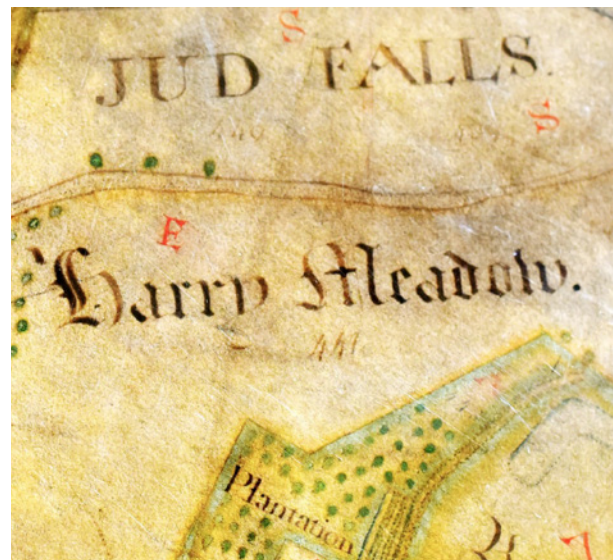 S
JUD FALLS.
S
E
Harry Meadow.
441
Plantation